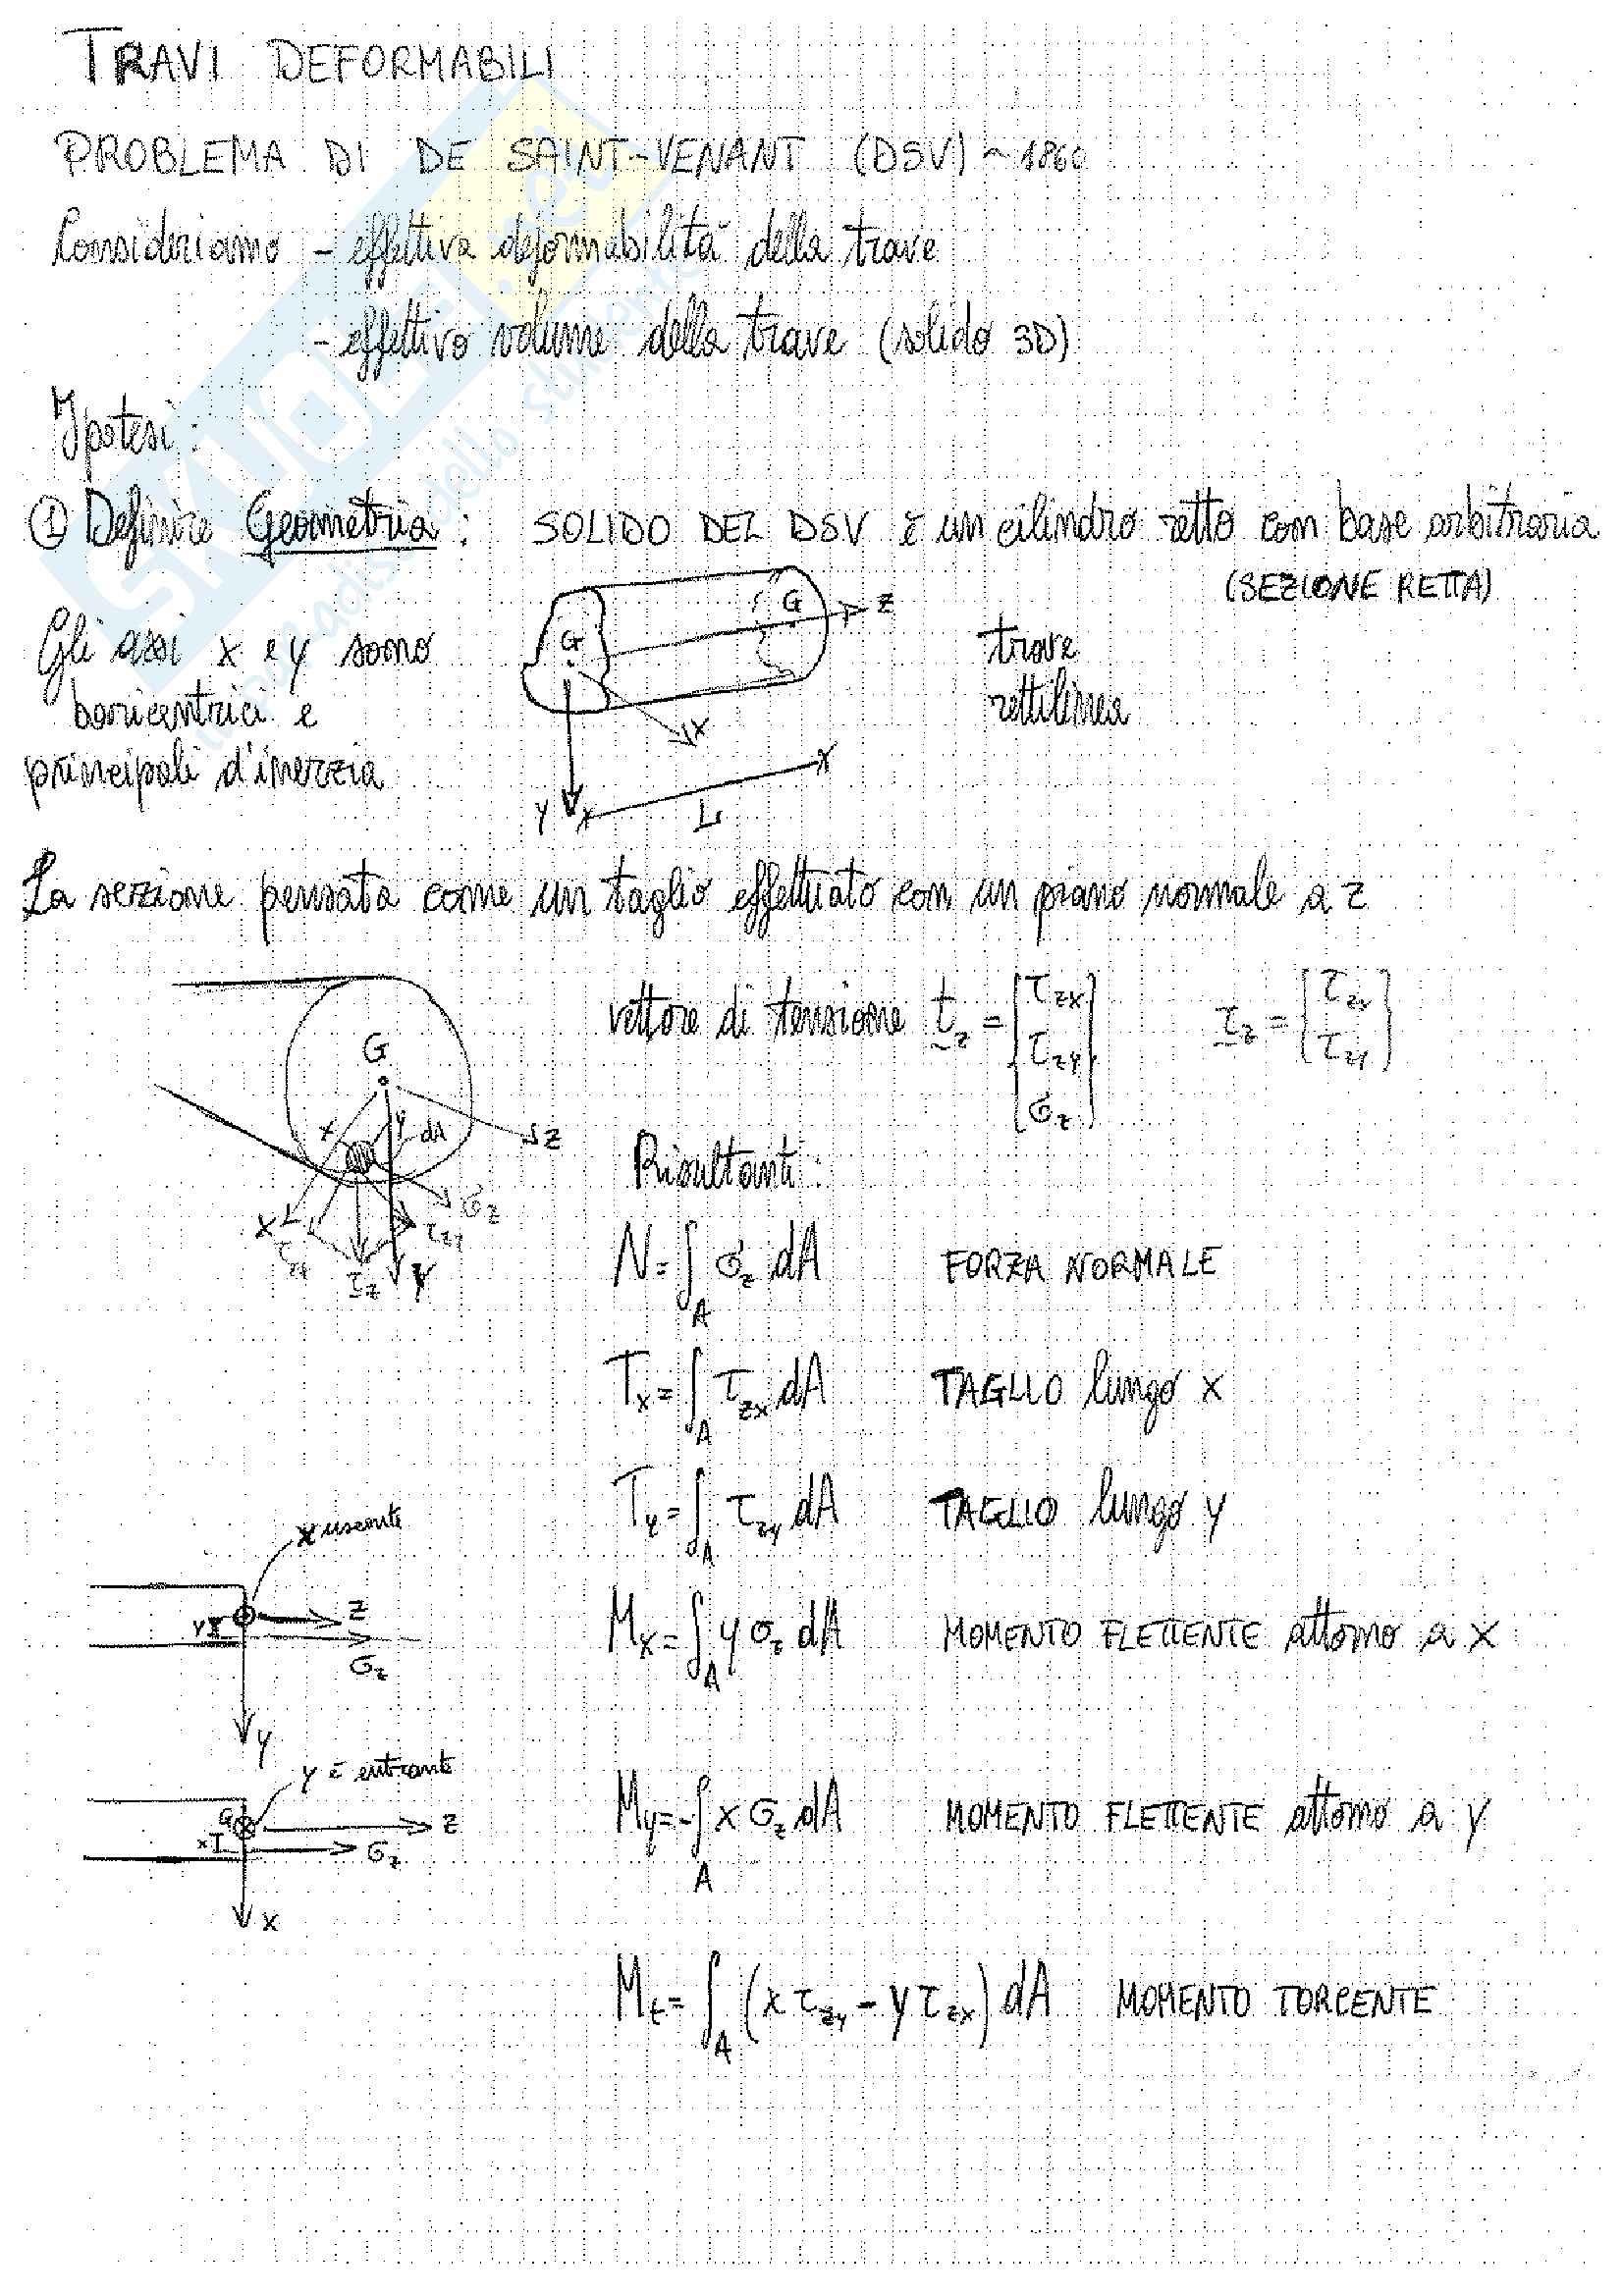 TRAVI DEFORMABILI
PROBLEMA DI DE SAINT-VENANT (DSV) ~ 1860
Consideriamo - effettiva deformabilità della trave
- effettivo volume della trave (solido 3D)
Ipotesi:
① Definire Geometria: SOLIDO DEL DSV è un cilindro retto con base arbitraria
(SEZIONE RETTA)
Gli assi x e y sono
baricentrici e
principali d'inerzia
G G z
x
y L
trave
rettilinea
La sezione pensata come un taglio effettuato con un piano normale a z
vettore di tensione t_z = [τ_zx τ_zy σ_z] τ_z = [τ_zx τ_zy]
G
x y dA z
σ_z
x τ_zx τ_zy
τ_z y
Risultanti:
N = ∫_A σ_z dA FORZA NORMALE
T_x = ∫_A τ_zx dA TAGLIO lungo x
T_y = ∫_A τ_zy dA TAGLIO lungo y
x uscente
z
y
σ_z
y
M_x = ∫_A y σ_z dA MOMENTO FLETTENTE attorno a x
y è entrante
G z
x σ_z
x
M_y = -∫_A x σ_z dA MOMENTO FLETTENTE attorno a y
M_t = ∫_A (x τ_zy - y τ_zx) dA MOMENTO TORCENTE